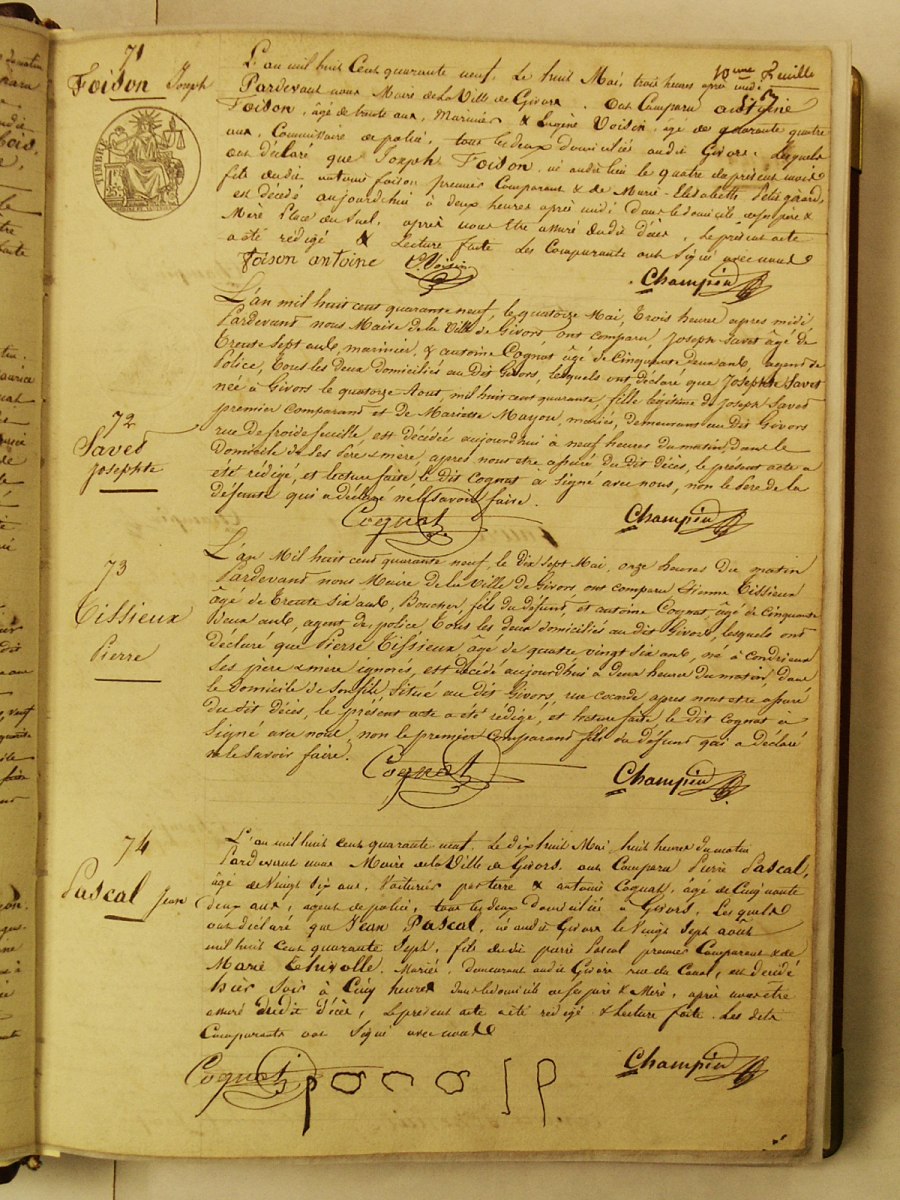 10eme Feuille
71
Foison Joseph
TIMBRE
L'an mil huit Cent quarante neuf. Le huit Mai, trois heures après midi
Pardevant nous Maire de La Ville de Givors. Ont Comparu antoine
Foison, âgé de trente ans, Marinier & Eugène Voisin, âgé de quarante quatre
ans, Commissaire de police, tous les deux domiciliés audit Givors. Lesquels
ont déclaré que Joseph Foison, né audit lieu le quatre du présent mois
fils dudit antoine foison premier Comparant & de Marie-Elisabeth Petit girard,
est décédé aujourdhui à deux heures après midi dans le domicile de ses père &
Mère Place du Suel, après nous être assuré dudit décès, Le présent acte
a été rédigé & Lecture faite Les Comparants ont Signé avec nous
Foison antoine E. Voisin Champin
72
Savet
Josephte
L'an mil huit cent quarante neuf, le quatorze Mai, trois heure apres midi
Pardevant nous Maire de la Ville de Givors, ont comparu Joseph Savet âgé de
trente sept ans, marinier, & antoine Cognat âgé de Cinquante deux ans, agent de
Police, tous les deux domiciliés au dit Givors, lesquels ont déclaré que Josephte Savet
née à Givors le quatorze Aout, mil huit cent quarante, fille legitime de Joseph Savet
premier Comparant et de Mariette Mayou, mariés, demeurans au dit Givors
rue de froide feuille est décédée aujourdhui à neuf heures du matin, dans le
domicile de ses Père & mere apres nous etre assuré du dit Décès, le présent acte a
eté rédigé, et lecture faite le dit Cognat a Signé avec nous, non le Pere de la
défunte qui a déclaré ne le Savoir faire.
Cognat Champin
73
Tissieux
Pierre
L'an Mil huit cent quarante neuf, le dix sept Mai, onze heures Du matin
Pardevant nous Maire de la Ville de Givors, ont comparu Etienne Tissieux
âgé de trente six ans, Boucher, fils du défunt, et antoine Cognat âgé de Cinquante
Deux ans, agent de police tous les deux domiciliés au dit Givors, lesquels ont
déclaré que Pierre Tissieux âgé de quatre vingt six ans, né à Condrieux
Ses pere & mere ignorés, est décédé aujourdhui à deux heure du matin, dans
le domicile de son fils, Situé au dit Givors, rue cocarde apres nous etre assuré
du dit décès, le présent acte a été rédigé, et lecture faite, le dit Cognat a
Signé avec nous, non le premier Comparant fils du défunt qui a déclaré
ne le Savoir faire.
Cognat Champin
74
Pascal Jean
L'an mil huit cent quarante neuf. Le dix huit Mai, huit heures du matin
Pardevant nous Maire de la Ville de Givors. ont Comparu Pierre Pascal,
âgé de Vingt Six ans, Voiturier par terre & antoine Cognat, âgé de Cinquante
deux ans, agent de police, tous les deux domiciliés à Givors. Lesquels
ont déclaré que Jean Pascal, né audit Givors le Vingt Sept août
mil huit Cent quarante Sept, fils de Pierre Pascal premier Comparant & de
Marie Thivolle. Mariés, demeurant audit Givors rue du Canal, est décédé
hier Soir à Cinq heures dans le domicile de Ses père & Mère, après nous être
assuré dudit décès, Le présent acte a été rédigé & Lecture faite. Les dits
Comparants ont Signé avec nous
Cognat pascal p Champin